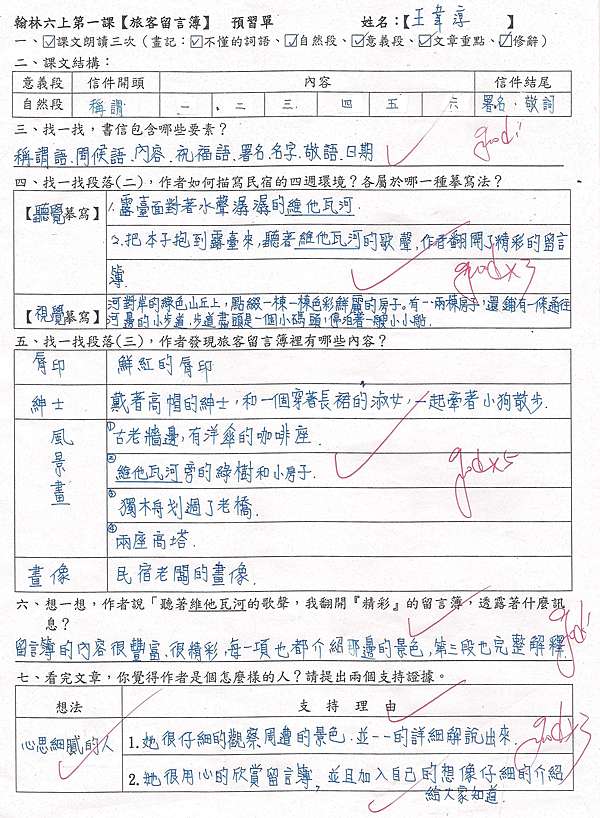 翰林六上第一課【旅客留言簿】 預習單 姓名:【王韋淳】
一、☑課文朗讀三次(畫記:☑不懂的詞語、☑自然段、☑意義段、☑文章重點、☑修辭)
二、課文結構:
意義段 信件開頭 內容 信件結尾
自然段 稱謂 一、二 三 四 五 六 署名、敬詞
三、找一找,書信包含哪些要素?
稱謂語、問候語、內容、祝福語、署名、名字、敬語、日期
good!
四、找一找段落(二),作者如何描寫民宿的四週環境?各屬於哪一種摹寫法?
【聽覺摹寫】 1.露臺面對著水聲潺潺的維他瓦河.
2.把本子抱到露臺來,聽著維他瓦河的歌聲,作者翻開了精彩的留言
簿.
goodx3
【視覺摹寫】 河對岸的綠色山丘上,點綴一棟一棟色彩鮮麗的房子。有一、兩棟房子,還鋪有一條通往
河邊的小步道,步道盡頭是一個小碼頭,停泊著一艘小小船.
五、找一找段落(三),作者發現旅客留言簿裡有哪些內容?
脣印 鮮紅的脣印
紳士 戴著高帽的紳士,和一個穿著長裙的淑女,一起牽著小狗散步.
風景畫 ①古老牆邊,有洋傘的咖啡座.
②維他瓦河旁的綠樹和小房子.
③獨木舟划過了老橋.
④兩座高塔.
goodx5
畫像 民宿老闆的畫像.
六、想一想,作者說「聽著維他瓦河的歌聲,我翻開『精彩』的留言簿,透露著什麼訊
息?
留言簿的內容很豐富、很精彩,每一項也都介紹那邊的景色,第三段也完整解釋.
good!
七、看完文章,你覺得作者是個怎麼樣的人?請提出兩個支持證據。
想法 支持理由
心思細膩的人 1.她很仔細的觀察周遭的景色,並一一的詳細解說出來.
2.她很用心的欣賞留言簿,並且加入自己的想像仔細的介紹
給大家知道.
goodx3